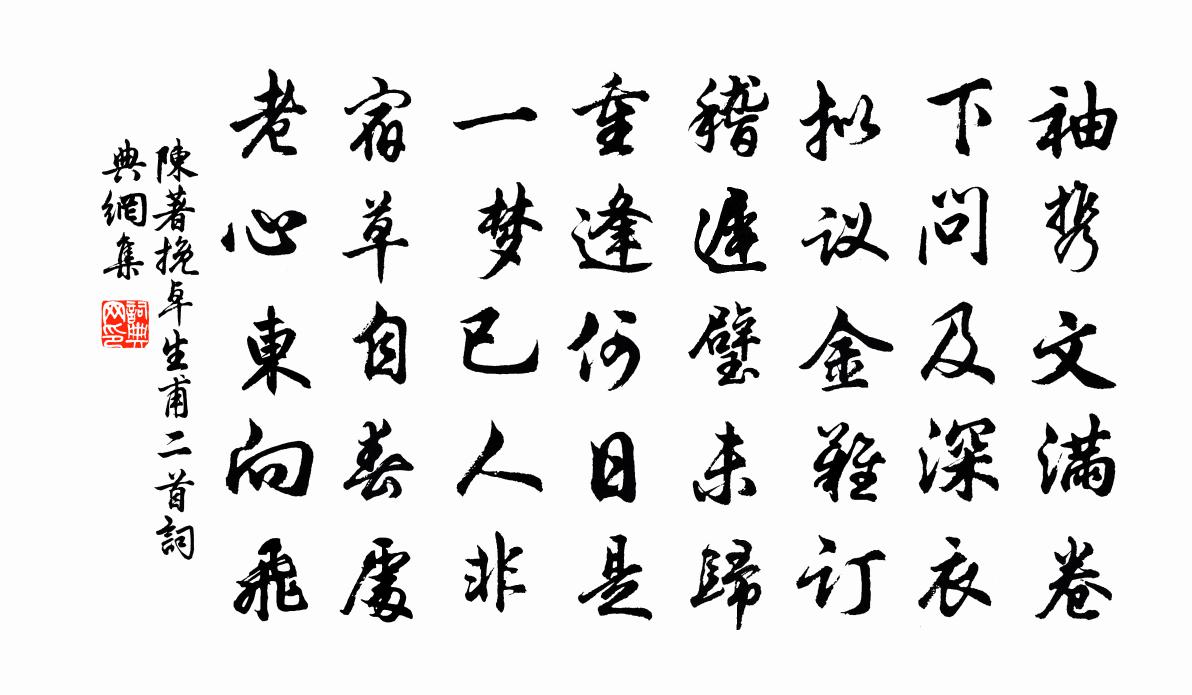 袖携文滿卷
下问及深衣
拟议金難订
稽遲璧未歸
重逢何日是
一梦已人非
宿草自春處
老心東向飛
陳著挽卓生甫二首詞
典網集
詞典网印